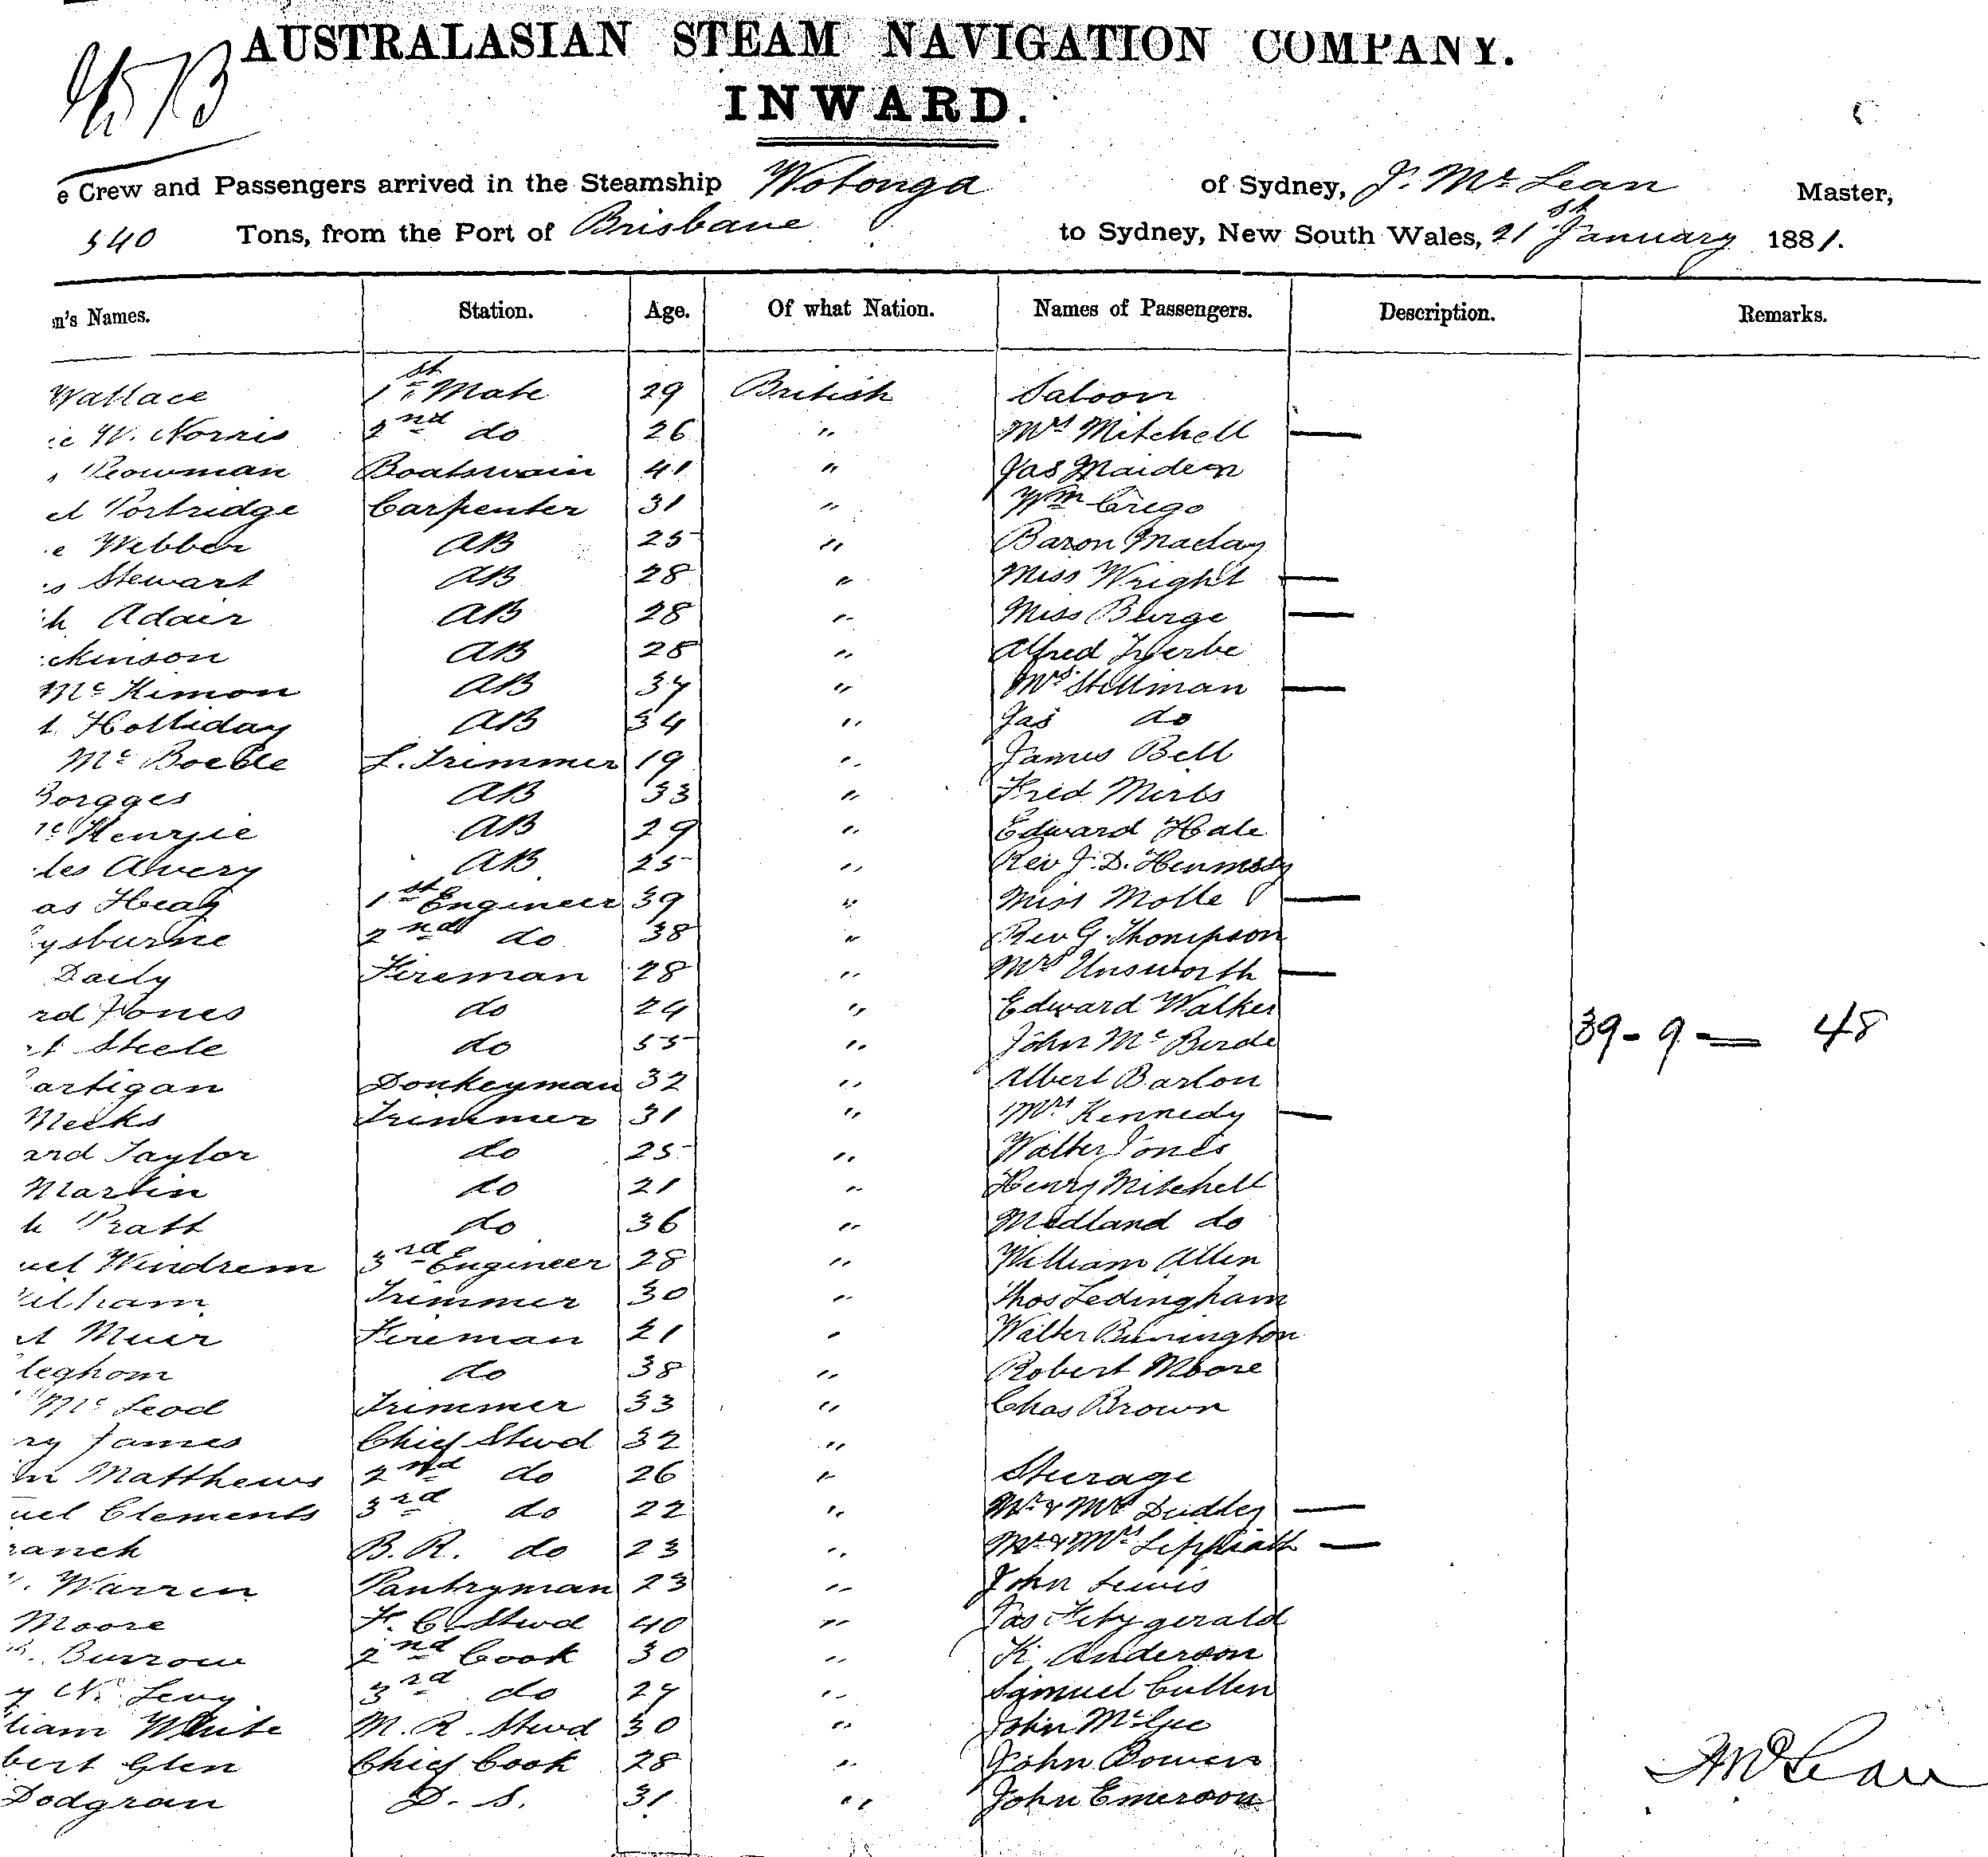 AUSTRALASIAN STEAM NAVIGATION COMPANY.
INWARD.
e Crew and Passengers arrived in the Steamship Wotonga of Sydney, J. Mc Lean Master,
540 Tons, from the Port of Brisbane to Sydney, New South Wales, 21st January 1881.
m's Names. Station. Age. Of what Nation. Names of Passengers. Description. Remarks.
Wallace 1st Mate 29 British Saloon
W. Norris 2nd do 26 " Mrs Mitchell —
Plowman Boatswain 41 " Jas Maidern
et Portridge Carpenter 31 " Wm Crego
e Webber AB 25 " Baron Maclay
s Stewart AB 28 " Miss Wright —
h Adair AB 28 " Miss Burge —
ckinson AB 28 " Alfred
Mc Kimon AB 34 " Mrs Stillman —
t. Holliday AB 34 " Jas do
Mc Boeble L. Trimmer 19 " James Bell
Borgges AB 33 " Fred Merbs
Kenzie AB 29 " Edward Hale
les Avery AB 25 " Rev J. D. Henmsby
as Heag 1st Engineer 39 " Miss Molle —
ysburne 2nd do 38 " Rev G. Thompson
Daily Fireman 28 " Mrs Unsworth —
rd Jones do 24 " Edward Walker
t Steele do 55 " John Mc Birde 39 - 9 = 48
artigan Donkeyman 32 " Albert Barton
Meeks Trimmer 31 " Mrs Kennedy —
ard Taylor do 25 " Walter Jones
Martin do 21 " Henry Mitchell
h Pratt do 36 " Medland do
uel Windrem 3rd Engineer 28 " William Allen
ilham Trimmer 30 " Thos Ledingham
t Muir Fireman 21 " Walter Bunington
leghorn do 38 " Robert Moore
Mc Leod Trimmer 33 " Chas Brown
ry James Chief Stwd 32 "
Matthews 2nd do 26 " Sturage
uel Clements 3rd do 22 " Mr & Mrs Dudley —
ranch B. R. do 23 " Mr & Mrs —
Warren Pantryman 23 " John Lewis
Moore F. C. Stwd 40 " Jas Fitzgerald
Burrow 2nd Cook 30 " K. Anderson
y N. Levy 3rd do 24 " Samuel Cullen
liam White M. R. Stwd 30 " John McGee
bert Glen Chief Cook 28 " John Bowen
Dodgran D. S. 31 " John Emerson
J McLean